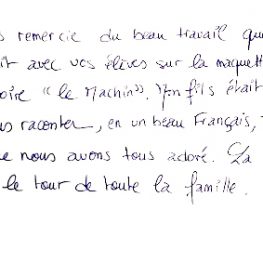 s remercie du beau travail que
it avec vos élèves sur la maquette
oire "le Machin". Mon fils était
us raconter, en un beau Français,
e nous avons tous adoré. La
le tour de toute la famille.